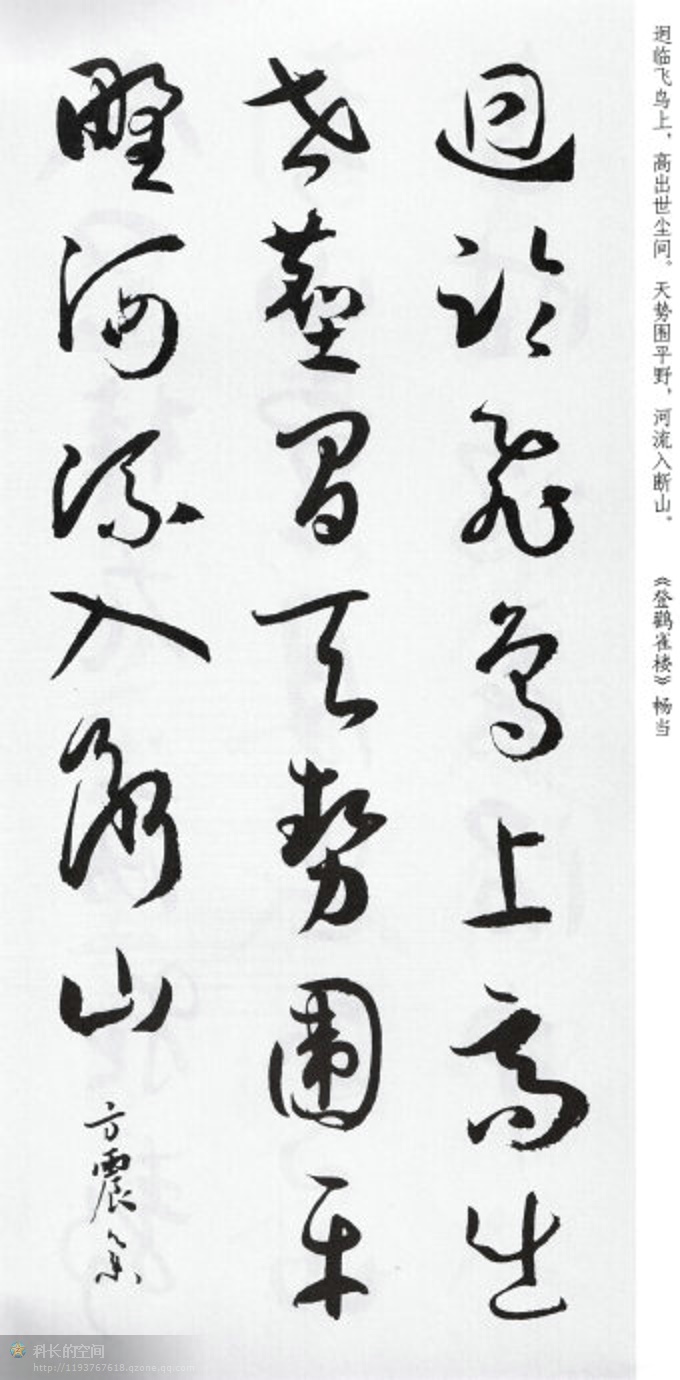 迥临飞鸟上，高出世尘间。天势围平野，河流入断山。 《登鹳雀楼》畅当
迥臨飛鳥上高出
世塵間天勢圍平
野河流入斷山
方震
科长的空间
http://1193767618.qzone.qq.com